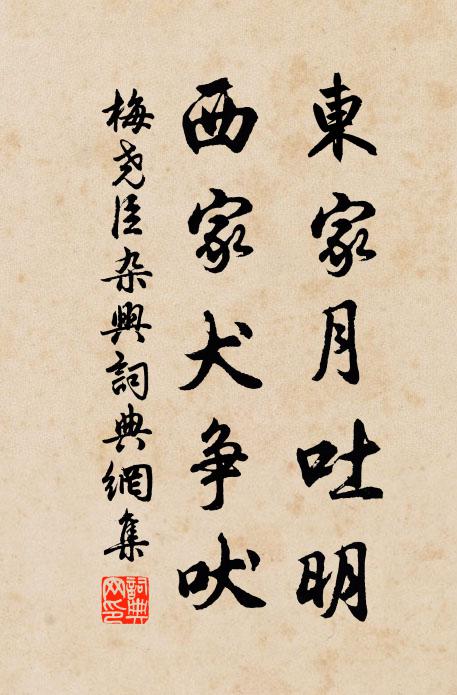 東家月吐明
西家犬争吠
梅堯臣杂興詞典網集
詞典网印